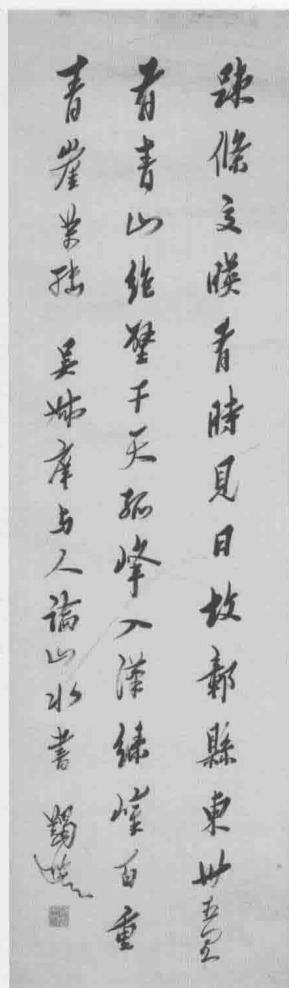 踈條交暎有時見日故鄣縣東卅五里
有青山絶壁干天孤峰入漢緑嶂百重
青崖萬轉 吳叔庠与人論山水書